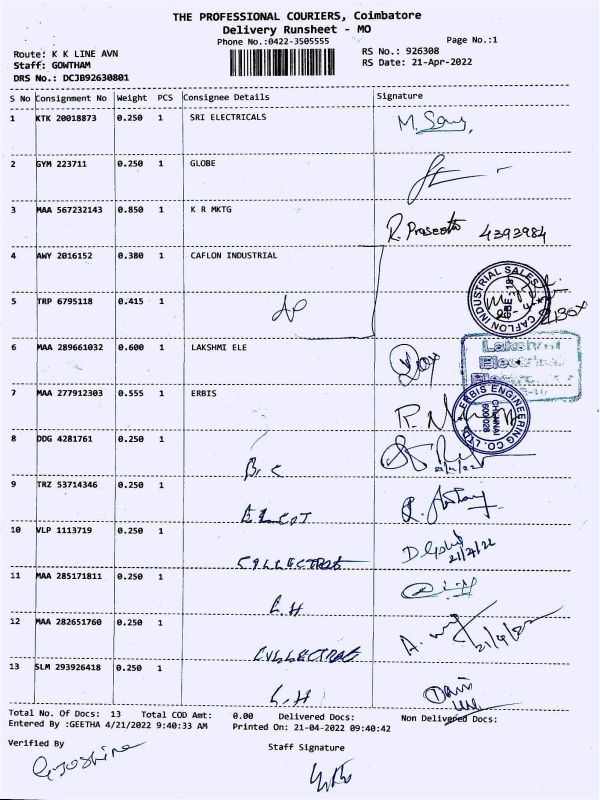 THE PROFESSIONAL COURIERS, Coimbatore
Delivery Runsheet - MO
Phone No.:0422-3505555
Page No.:1
Route: K K LINE AVN
Staff: GOWTHAM
DRS No.: DCJB92630801
RS No.: 926308
RS Date: 21-Apr-2022
S No Consignment No Weight PCS Consignee Details Signature
1 KTK 20018873 0.250 1 SRI ELECTRICALS
2 GYM 223711 0.250 1 GLOBE
3 MAA 567232143 0.850 1 K R MKTG
4393984
4 AWY 2016152 0.380 1 CAFLON INDUSTRIAL
CAFLON INDUSTRIAL SALES
5 TRP 6795118 0.415 1
AP
6 MAA 289661032 0.600 1 LAKSHMI ELE
Lakshmi
Electrical
7 MAA 277912303 0.555 1 ERBIS
ERBIS ENGINEERING CO. LTD.
CHENNAI
600028
8 DDG 4281761 0.250 1
9 TRZ 53714346 0.250 1
10 VLP 1113719 0.250 1
D. Gopi
21/4/22
11 MAA 285171811 0.250 1
L.H
12 MAA 282651760 0.250 1
13 SLM 293926418 0.250 1
L.H
Total No. Of Docs: 13 Total COD Amt: 0.00 Delivered Docs: Non Delivered Docs:
Entered By :GEETHA 4/21/2022 9:40:33 AM Printed On: 21-04-2022 09:40:42
Verified By
Staff Signature